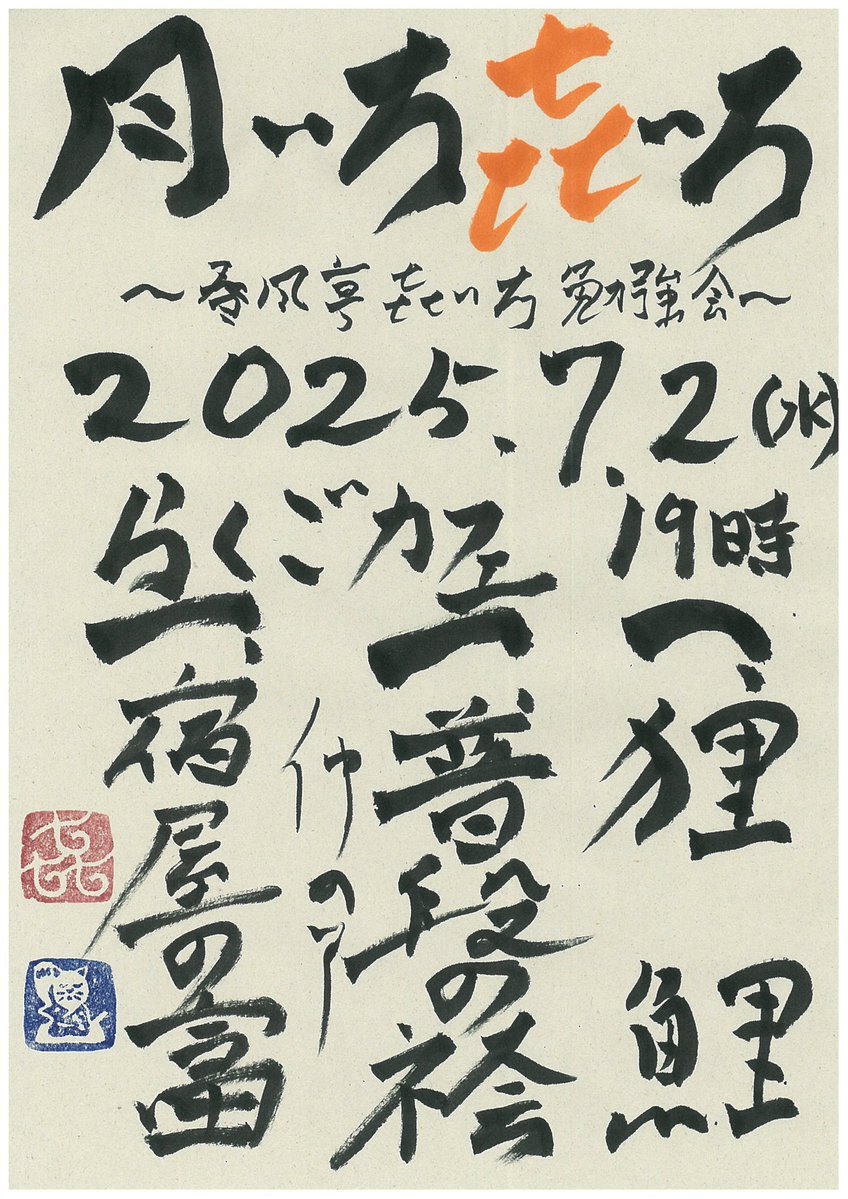 月いち㐂いち
～春風亭㐂いち勉強会～
2025.7.2(水)
らくごカフェ 19時
一、狸鯉
一、普段の袴
一、宿屋の富
㐂